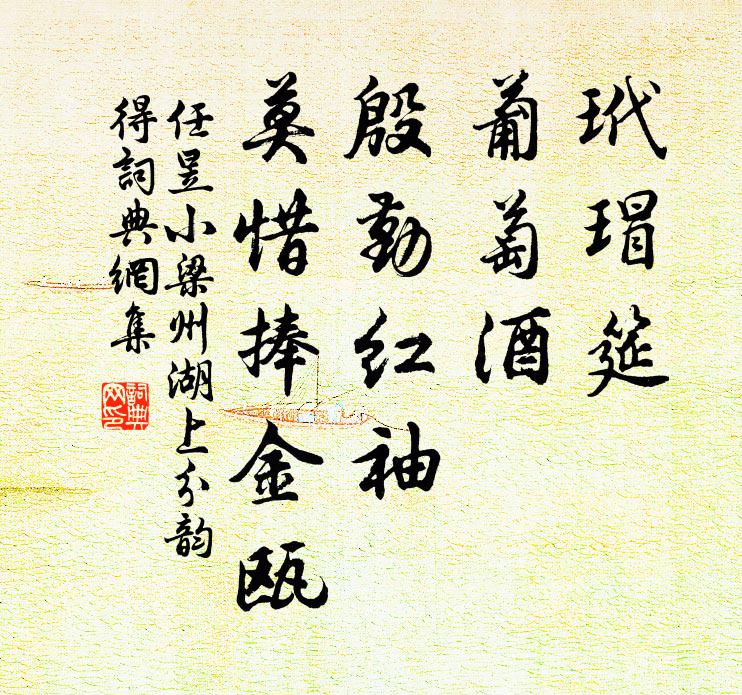 玳瑁筵
葡萄酒
殷勤红袖
莫惜捧金瓯
任昱小梁州湖上分韵
得詞典網集
詞典
网印